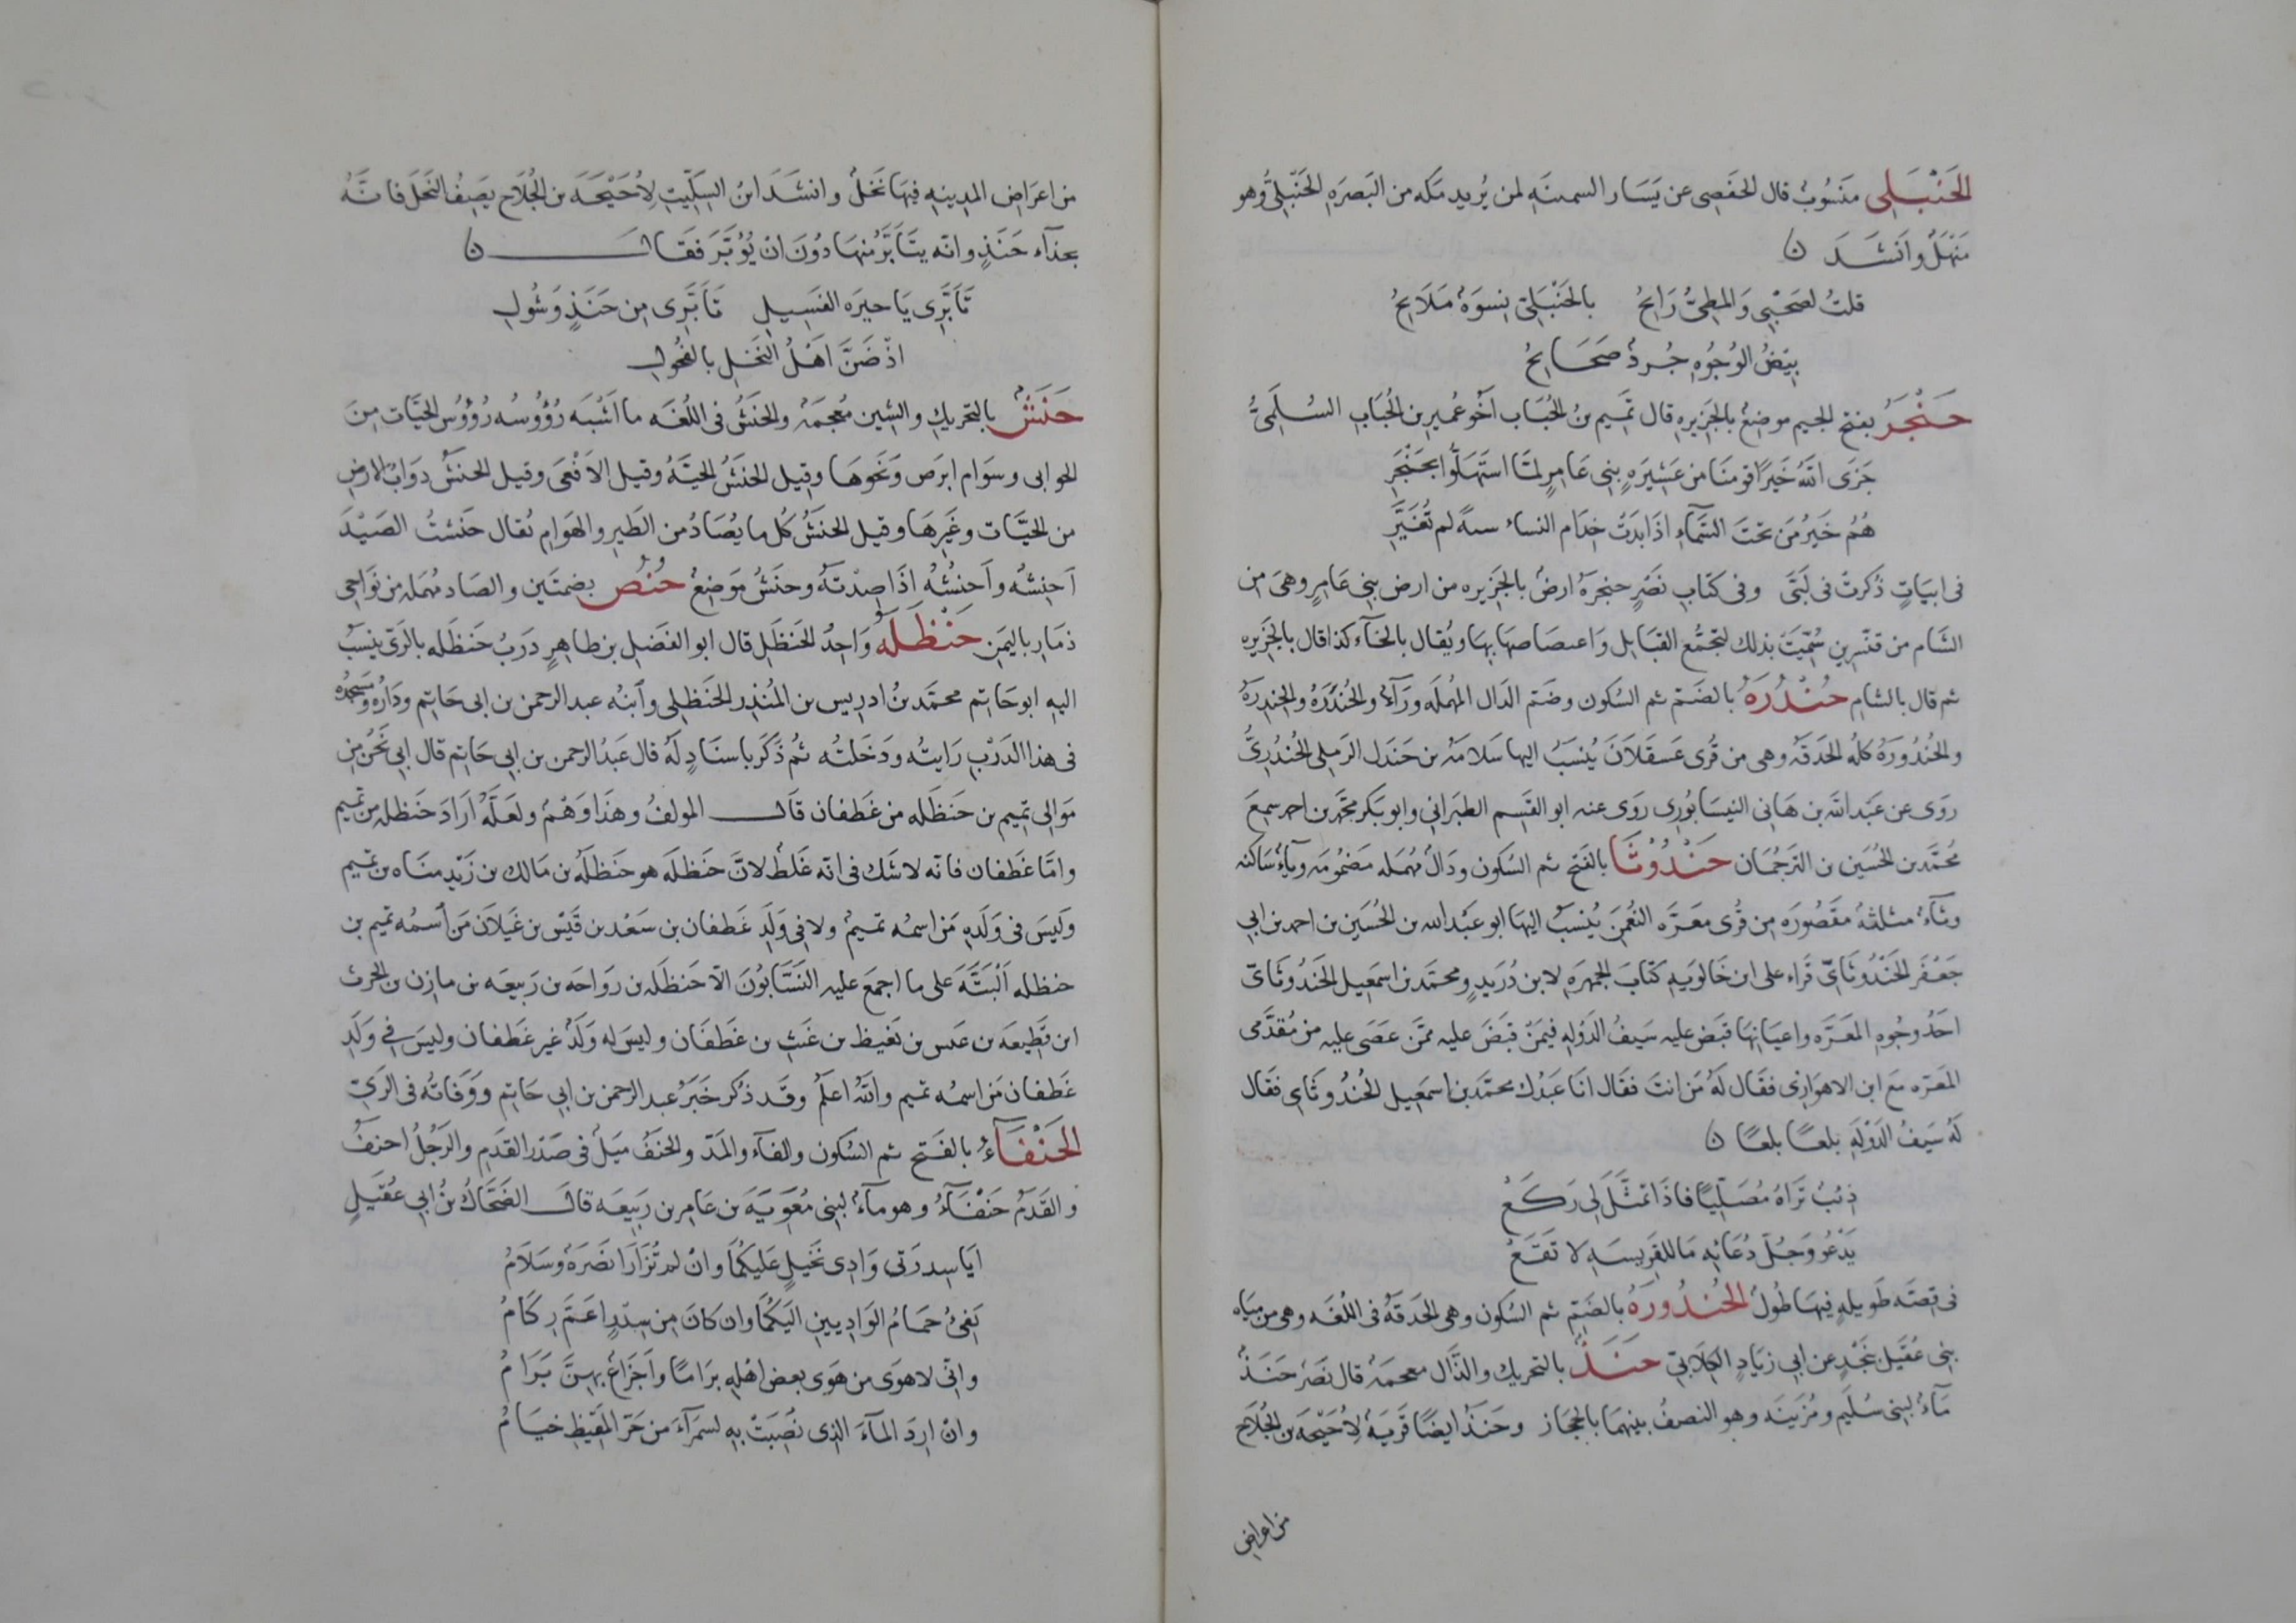 الحَنْبَلِى مَنسُوبٌ قال الحَفصِى عن يَسَار السمينَهِ لمن يُريد مَكه من البَصرَهِ الحَنبَلِىُّ وهو
مَنْهَلٌ وانشَدَ ن
قلتُ لصَحْبِى وَالمطِىُّ رَايحُ بالحَنْبَلِىّ نِسوَةٌ مَلَايحُ
بِيْضُ الوُجُوهِ جُردٌ صَحَايحُ
حَنْجَرُ بفتح الجيم موضِعٌ بالجَزِيرهِ قال تَميم بنُ الحُبَاب اخُو عُمَيرِ بن الحُبَابِ السُلَمىُّ
جَزَى اللهُ خَيرًا قومَنَا من عَشِيَرهٍ بنِى عَامِرٍ لمّا استَهَلّوا بحَنْجَرِ
هُمُ خَيرُ مَن تحتَ السَّمآءِ اذَا بَدَتْ خِدَام النساء لم تُغَيَّرِ
فى ابيَاتٍ ذُكرتْ فى لَبَّى وفى كتابِ نَصْرٍ حنجرَهُ ارضٌ بالجَزِيره من ارض بنِى عَامِرٍ وهىَ من
الشَام من قنّسرِين سُمّيَتْ بذلك لتجمُّع القبَايل وَاعتصاصهَا بهَا ويُقال بالخآء كذا قال بالجَزِيره
ثم قال بالشامِ حُنْدُرَهُ بالضَّم ثم السُكون وضَم الدَال المُهملَه ورَآءٌ والحُندَرَهُ والحِندِرَهُ
والحُندُورَهُ كلُه الحَدقَه وهى من قُرى عَسقَلَانَ يُنسَبُ اليها سَلامَهُ بن جَندَل الرَملِى الحُندُرىُّ
روَى عن عَبَد اللهَ بن هَانى النيسَابُورِى روَى عنه ابو القَسِم الطبَرانِى وابو بَكر محمّد بن احمد سمِعَ
مُحمّد بن الحُسَين بن الترجُمَان حَنْدُوثَا بالفتح ثم السُكون ودَالٌ مُهمَله مَضمُومَه ووآءٌ سَاكنه
وثآءٌ مثلثهٌ مقَصُورَه مِن قُرى معَرَّه النُعْمنِ يُنسَبُ اليهَا ابو عَبْد الله بن الحُسَين بن احمد بن ابِى
جَعْفَر الحَنْدُوثَاىّ قَراء على ابن خَالوَيهِ كتابَ الجمهرَهِ لابن دُرَيدٍ ومحتمَد بن اسمعِيل الحَندُوثَاىّ
احَدُ وجُوهِ المعَرَّه واعيَانِهَا قبَض عليه سَيفُ الدَوْلهِ فيمَنْ قبَضَ عليه ممَّن عصَى عليه من مُقدَّمى
المعرّه مَع ابن الاهوَازِى فقَال لَهُ مَن انتَ فقَال انَا عَبدُك محمّد بن اسمَعِيل الحُندُوثَاىِ فقَال
لَهُ سَيفُ الدَوْلَهِ بلعًا بلعًا ن
ذِئبٌ تَرَاهُ مُصَلّيًا فاذَا تمثّلَ لِى رَكَعْ
يَدْعُو وَجُلّ دُعَائِهِ مَا للفَرِيسَهِ لا تَقَعُ
فى قِصَّه طَويلهٍ فيهَا طُولٌ الحُندُورَهُ بالضّم ثم السُكون وهى الحَدقَهُ فى اللُغَه وهى من ميَاه
بنِى عُقَيل بنَجْدٍ عن ابِى زيَادٍ الكِلَابىّ حَنَذٌ بالتحريك والذَّال معجمَهُ قال نَصرٌ حَنَذٌ
مَآءٌ لبنِى سُلَيمٍ ومُزَينَه وهو النصفُ بينهمَا بالحِجَاز وحَنَذٌ ايضًا قَريَهٌ لِأُحَيْحَه بن الجُلَاح
من اعراض
من اعرَاضِ المدِينهِ فيهَا نَخلٌ وانشَدَ ابنُ السِكّيتِ لِأُحَيْحَهَ بن الجُلَاح يصِفُ النَخلَ فانَّهُ
بحذآءِ حَنَذٍ وانّه يتَأبَّرُ مِنهَا دُونَ انْ يُؤبَّرَ فقَالَ ن
تَأَبَّرِى يَا خيرَه الفَسِيلِ تَأَبَّرِى مِن حَنَذٍ وَشُولِ
اذْ ضَنَّ اهَلُ النَخلِ بالفحُولِ
حَنَشٌ بالتحريكِ والشين مُعجمَهٌ والحَنَشُ فى اللُغَه ما اَشبَه رُؤُوسُه رُؤُوسُ الحيَّات مِنَ
الحوابى وسَوَام ابرَص وَنَحوهَا وقيل الحَنشُ الحيّهُ وقيل الافعَى وقيل الحنَشُ دوَابّ الارض
من الحيّات وغَيرهَا وقيل الحَنَشُ كُل ما يُصَادُ من الطَير والهَوَامِ يُقال حَنَشتُ الصَيْدَ
اَحنِشُه واَحنُشُهُ اذَا صِدْتَهُ وحنَشُ مَوَضِعٌ حُنُصُ بضمتَين والصَاد مُهمَله من نوَاحِى
ذمَار باليَمنِ حَنْظَلَهُ وَاحِدُ الحَنظَلِ قال ابو الفَضل بن طاهِرٍ دَربُ حَنظَله بالرَىّ ينسَبُ
اليهِ ابو حَاتِم محمّد بنُ ادرِيس بن المُنذِر الحَنظلِى وابنُه عبد الرحمن بن ابى حَاتِم ودَارُه ومَسجدُه
فى هذا الدَرْبِ رَايتُه ودَخَلتُه ثمُ ذَكَر باسنَادٍ لَهُ قال عَبدُ الرحمن بن ابِى حَاتِم قال ابِى نَحُن مِن
مَوالِى تمِيم بن حَنظَله من غَطفان قَالَ المولفُ وهذَا وَهْمٌ ولعَلَّهُ ارَادَ حَنظله من تمِيم
وامّا غَطفان فانّه لا شَك فى انّه غَلطٌ لانَّ حَنظلَه هو حَنظلَهُ بن مَالك بن زَيد مَنَاه بن تمِيم
وَليسَ فى وَلَدِهِ مَن اسمُه تمِيمٌ ولا فِى وَلَدِ غَطفان بن سَعْد بن قَيْس بن غَيلَان مَن اسمُه تمِيم بن
حنظله اَلْبتَّهَ على ما اجمعَ عليه النَسَّابُونَ الاّ حَنظلَه بن رَواحَه بن رَبيعَه بن مازِن بن الحرث
ابن قَطِيعَه بن عبس بن بَغيظ بن غَيث بن غطَفَان وليسَ له وَلَدٌ غير غَطفان وليسَ فى وَلَدِ
غَطفان مَن اسمُه تمِيم واللهُ اعلَم وقَد ذُكر خَبَرُ عبد الرحمن بن ابِى حَاتِم ووَفَاتُه فى الرَىّ
الحَنْفَآءُ بالفَتح ثم السُكون والفآء والمَدّ والحَنَفُ مَيلٌ فى صَدْر القَدَم والرَجُلُ احنَفُ
والقَدَمُ حَنْفَآءُ وهو مآءٌ لبنِى مُعَوَيَهَ بن عَامِر بن رَبيعَه قالَ الضَحّاكُ بنُ ابِى عُقَيلٍ
ايَا سِدرَتى وَادِى نَخَيلٍ عَلَيكُمَا وانْ لم تُزَارَا نَضرَهٌ وسَلَامُ
يَفِىُ حمَامُ الوَادِيينِ اليَكُمَا وان كانَ مِن سِدرٍ اعَمَّ رِكَامُ
وانّى لاهوَى من هَوَى بعض اهْلِهِ بَرَامًا واَجزَاعٌ بهِنَّ بَرَامُ
وانْ ارِدَ المآءَ الذِى نَصِبَتْ بِهِ لسمرَآءَ من حَرّ المَقِيظِ خيَامُ